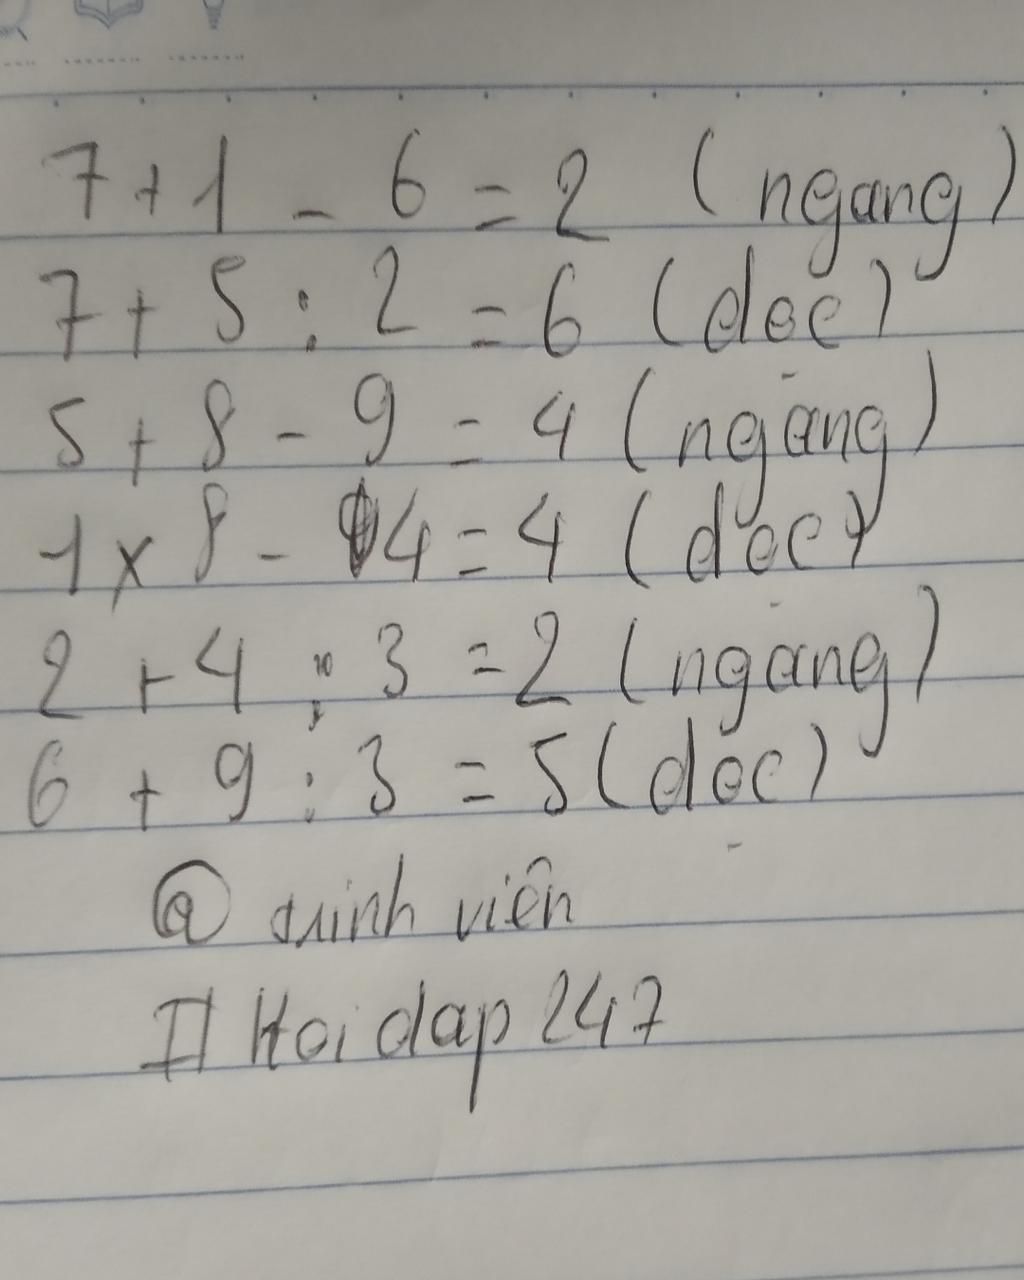 7 + 1 - 6 = 2 (ngang)
7 + 5 : 2 = 6 (dọc)
5 + 8 - 9 = 4 (ngang)
1 x 8 - 4 = 4 (dọc)
2 + 4 : 3 = 2 (ngang)
6 + 9 : 3 = 5 (dọc)
@ viên
Hoidap 247